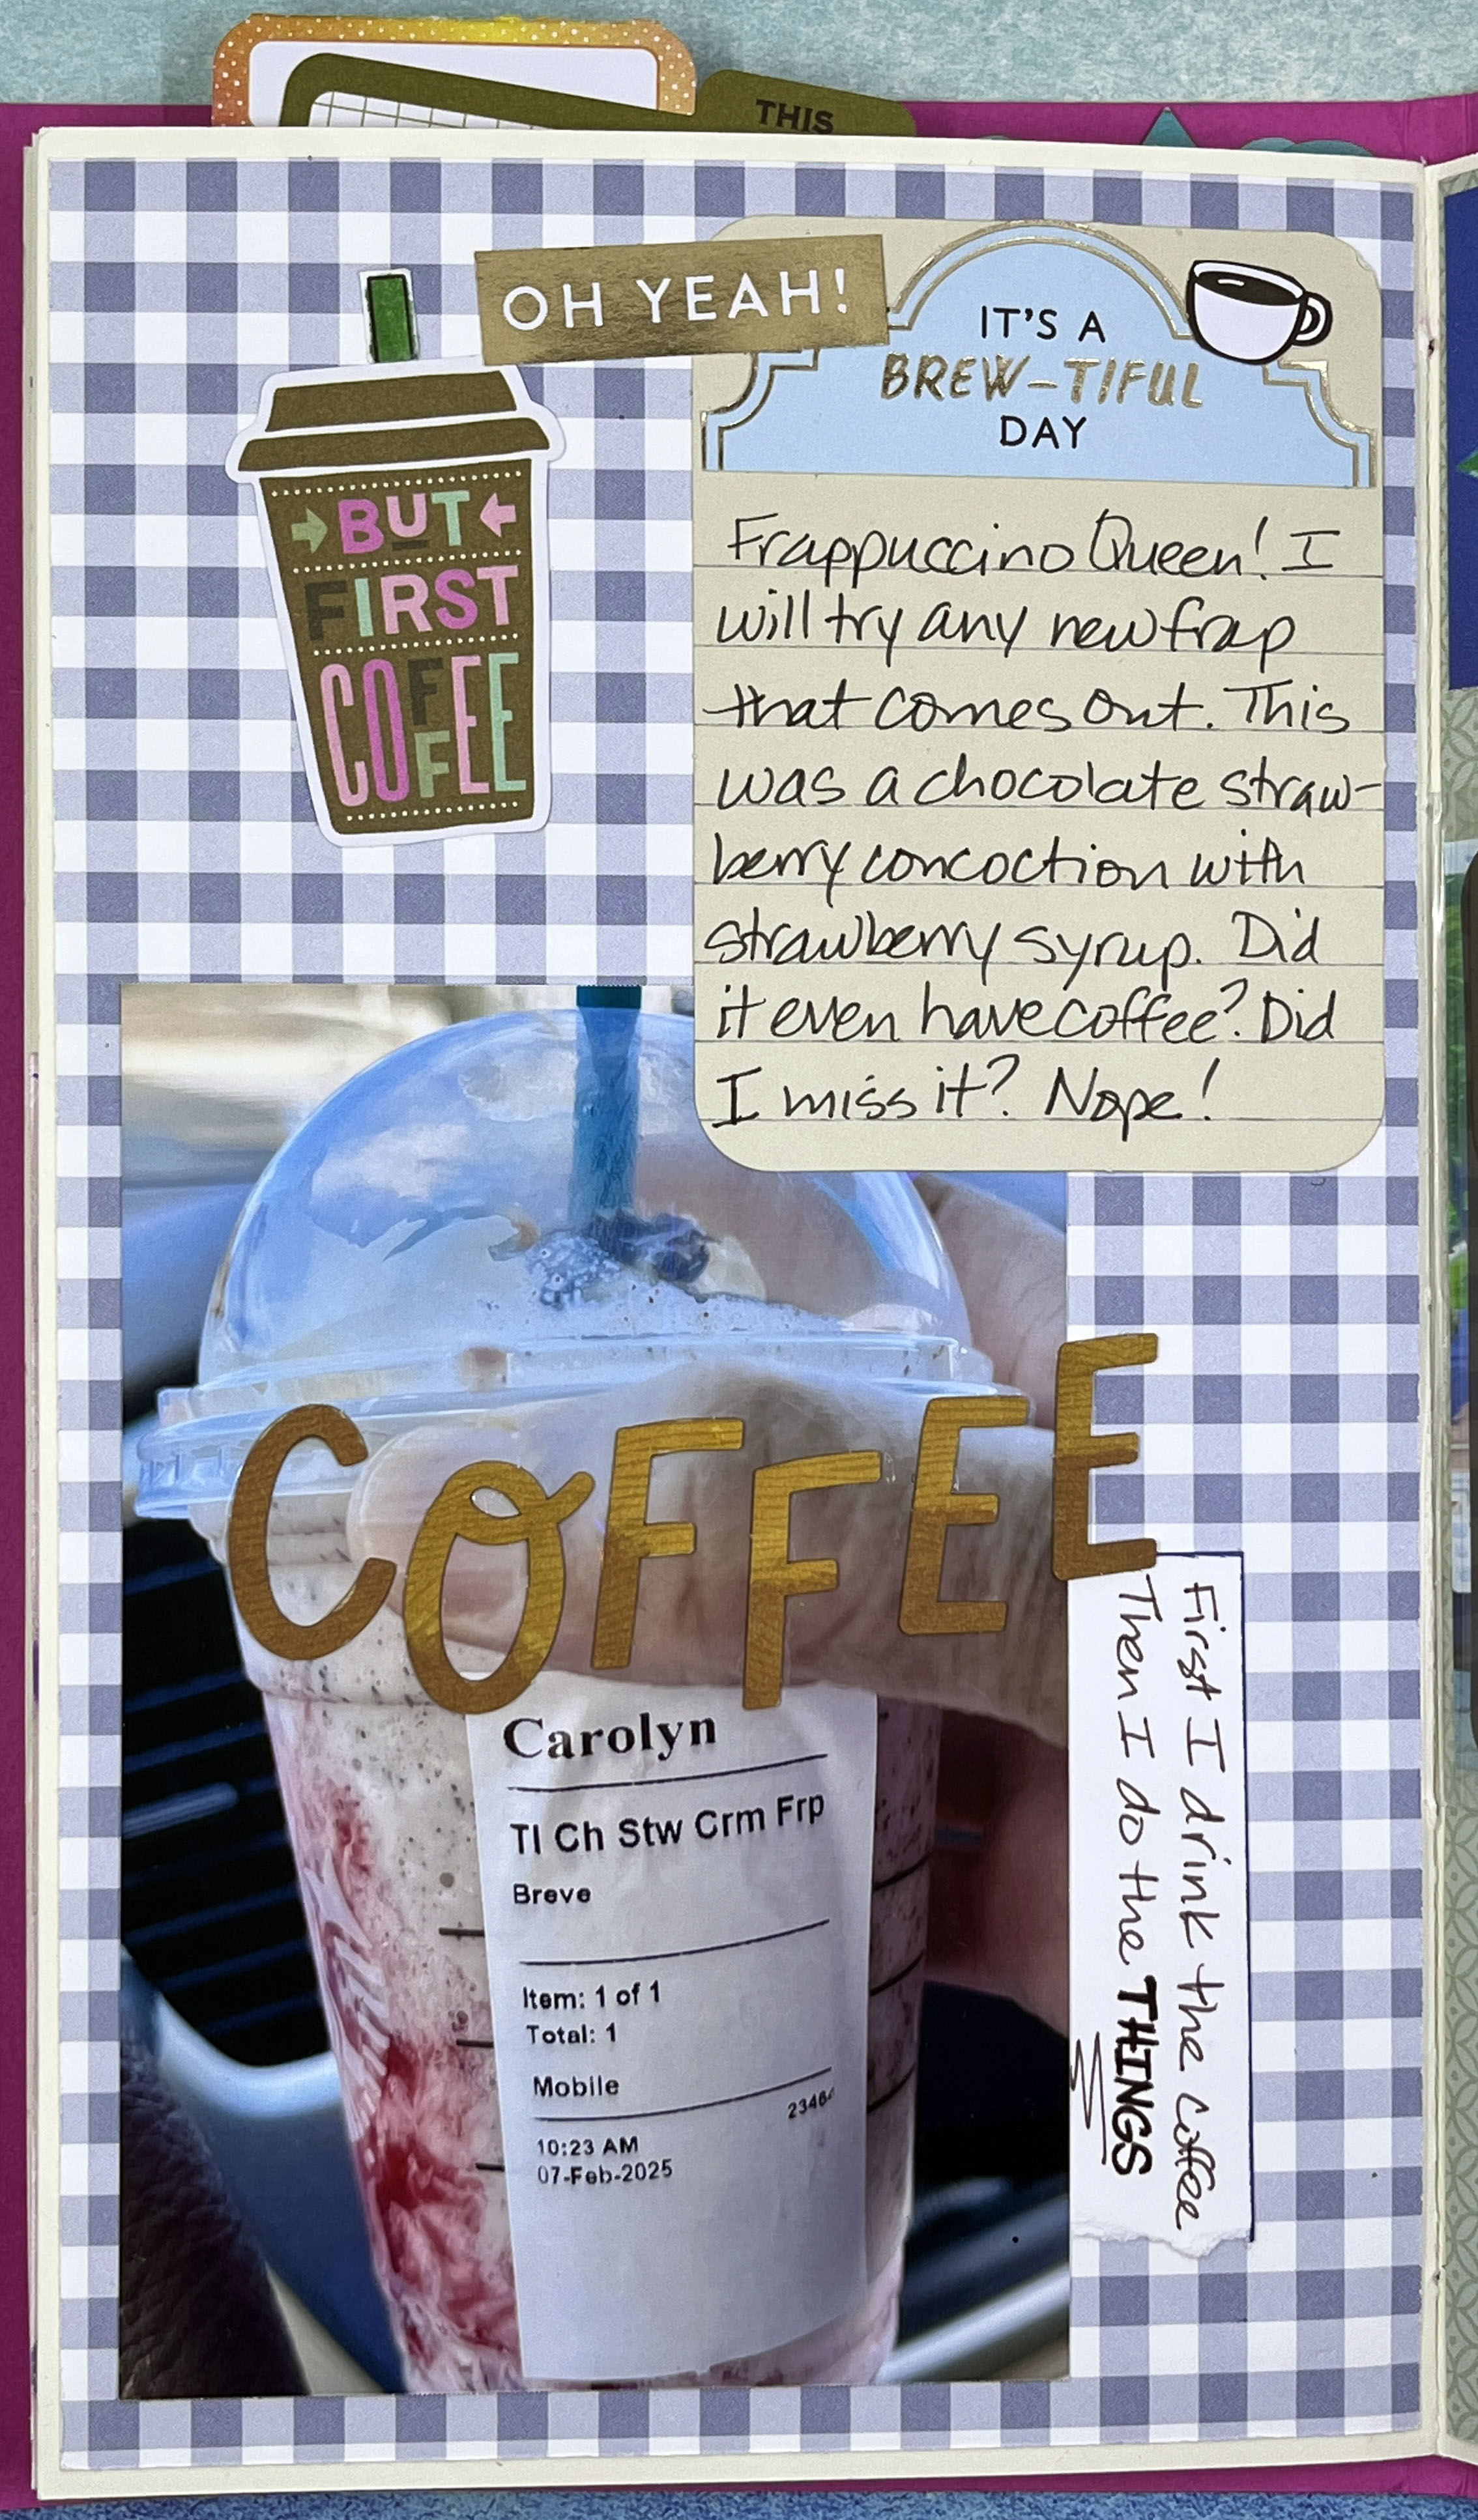 THIS
OH YEAH!
IT'S A
BREW-TIFUL
DAY
BUT
FIRST
COFFEE
Frappuccino Queen! I
will try any new frap
that comes out. This
was a chocolate straw-
berry concoction with
strawberry syrup. Did
it even have coffee? Did
I miss it? Nope!
COFFEE
Carolyn
Tl Ch Stw Crm Frp
Breve
Item: 1 of 1
Total: 1
Mobile
10:23 AM
07-Feb-2025
First I drink the coffee
Then I do the THINGS